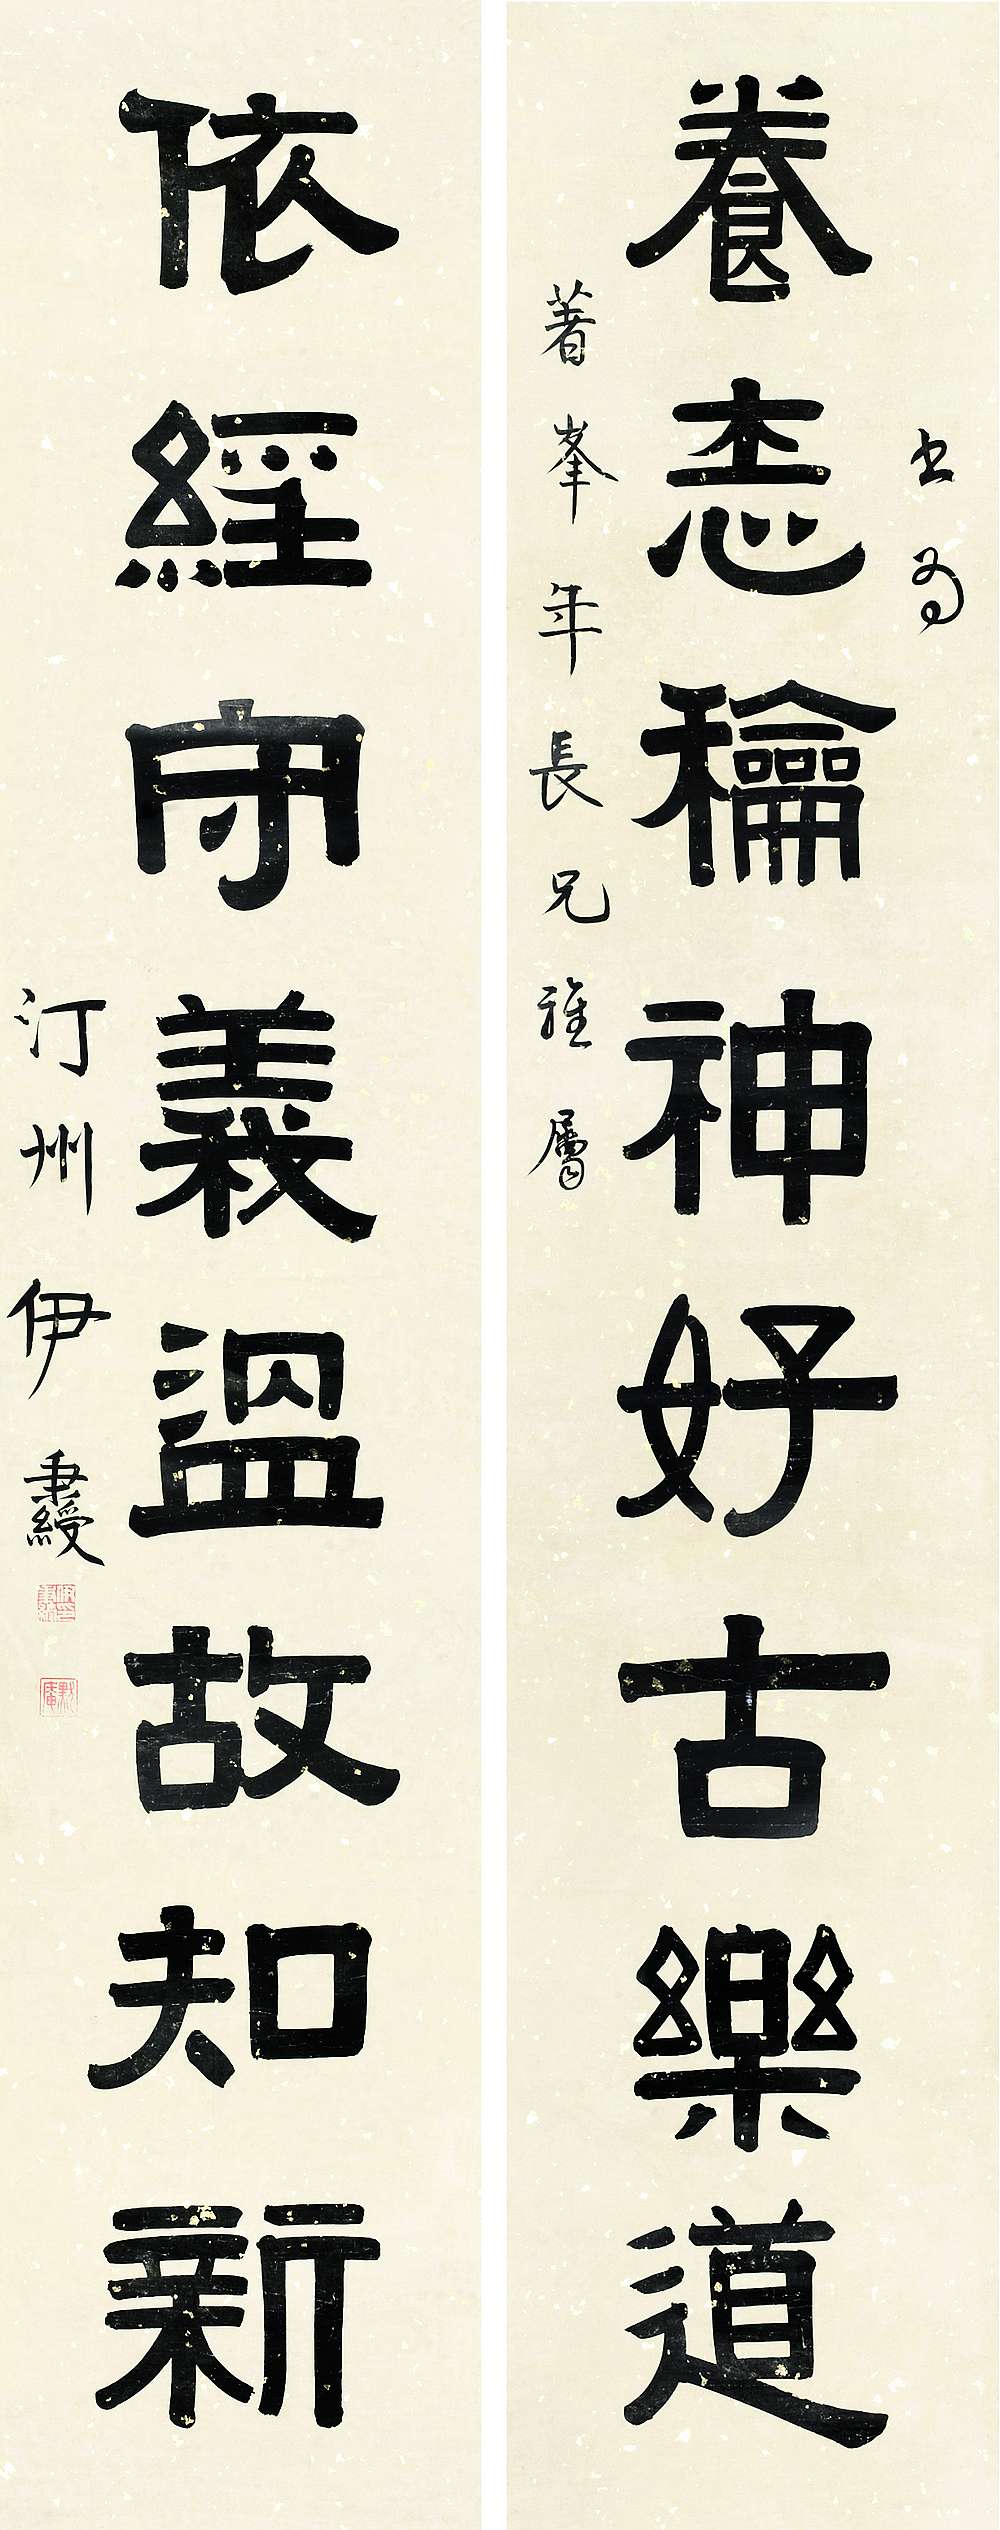 書為
養志龢神好古樂道
著峯年長兄雅屬
依經守義溫故知新
汀州伊秉綬
默庵